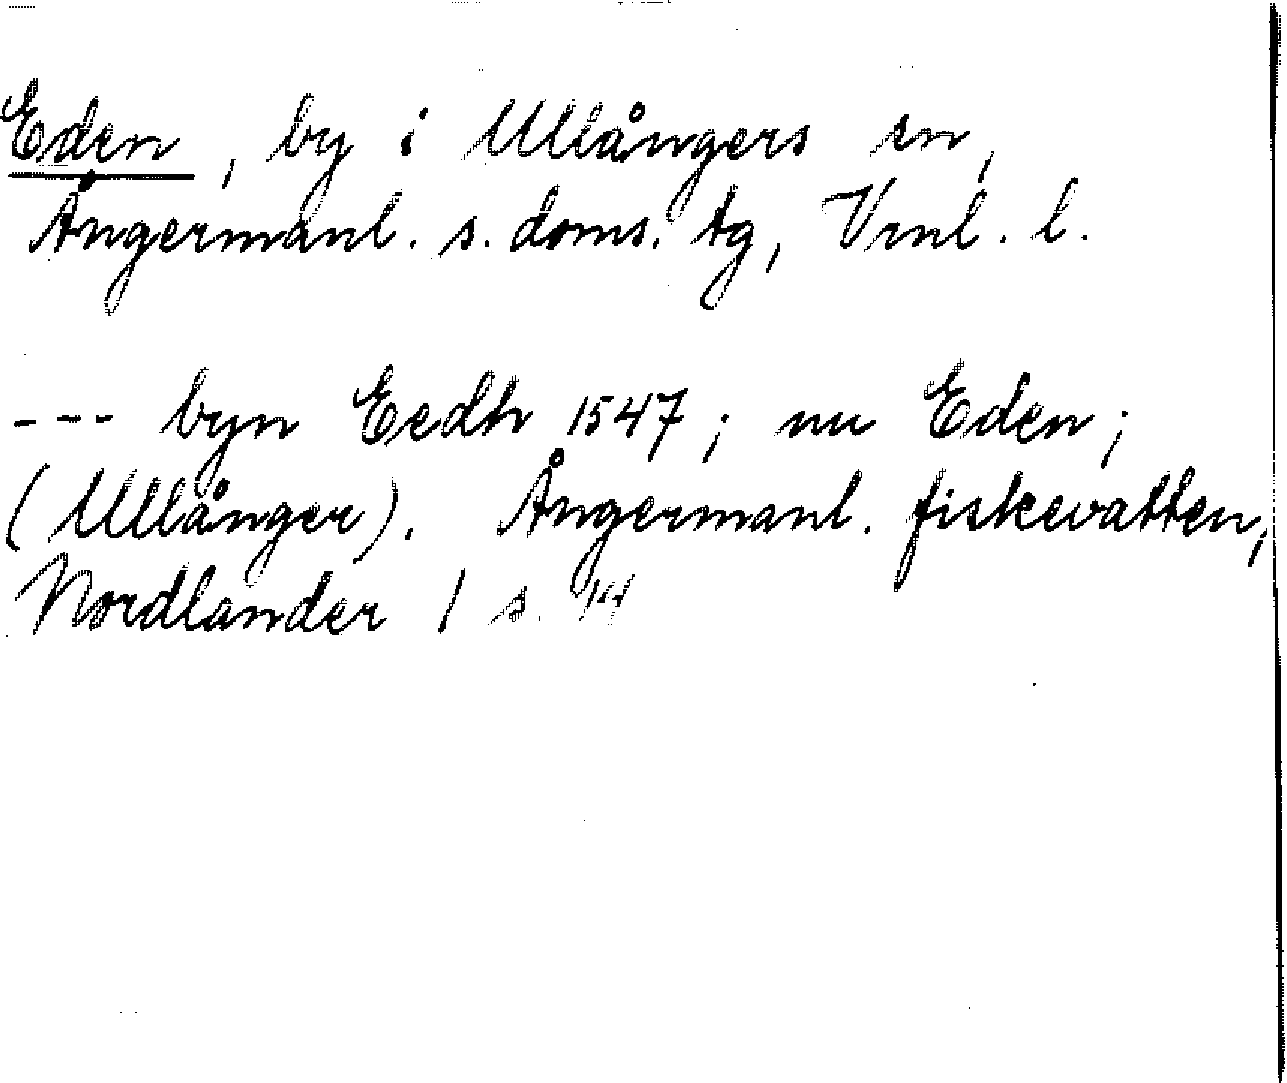 Eden, by i Ullångers sn,
Ångermanl. s. doms. tg, Vrnl. l.
--- byn Eedh 1547; nu Eden;
(Ullånger). Ångermanl. fiskevatten,
Nordlander 1 s.